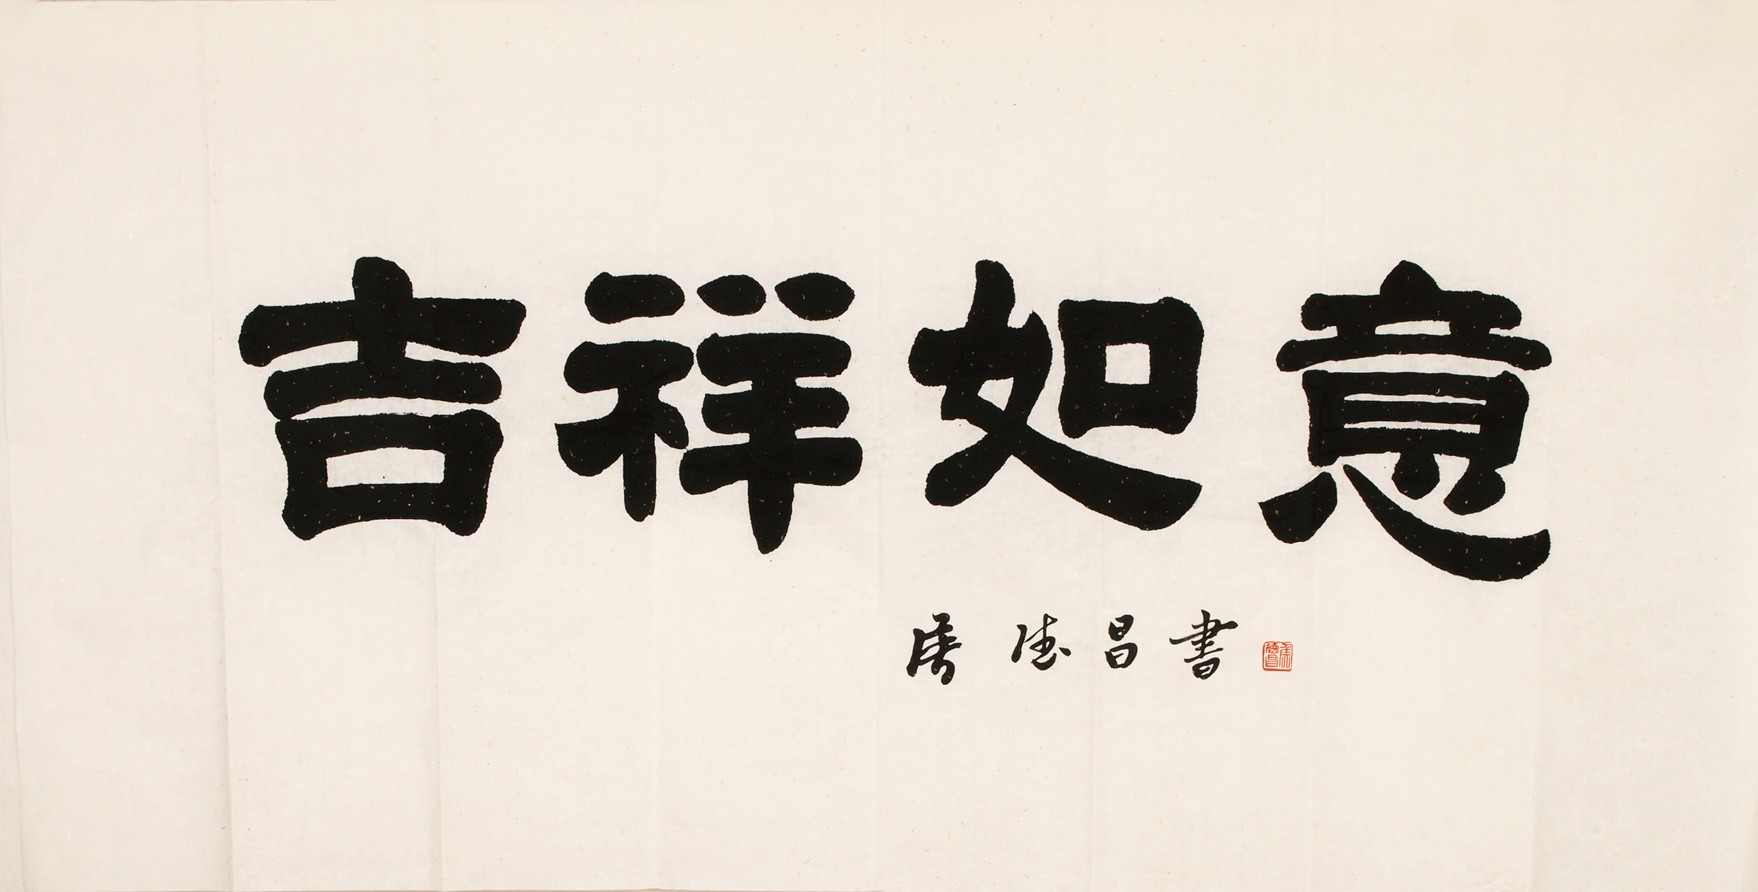 吉祥如意
德昌書